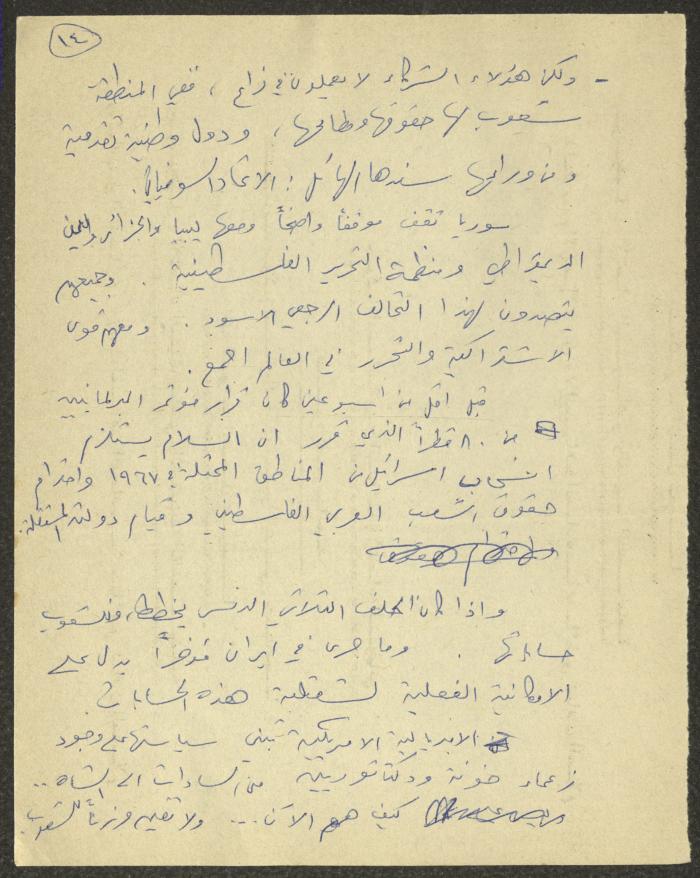 ١٤
- ولكن هؤلاء الشركاء لا يعملون في فراغ ، ففي المنطقة
شعوب لها حقوقها ومطامحها ، ودول وطنية تقدمية
ومن ورائها سندها الهائل : الاتحاد السوفياتي .
سوريا تقف موقفاً واضحاً ومعها ليبيا والجزائر واليمن
الديمقراطي ومنظمة التحرير الفلسطينية . وجميعهم
يتصدون لهذا التحالف الرجعي الاسود . ومعهم قوى
الاشتراكية والتحرر في العالم اجمع .
قبل اقل من اسبوعين كان قرار مؤتمر البرلمانيين
من ٨٠ قطراً الذي قرر ان السلام يستلزم
انسحاب اسرائيل من المناطق المحتلة في ١٩٦٧ واحترام
حقوق الشعب العربي الفلسطيني وقيام دولته المستقلة .
واذا كان الحلف الثلاثي الدنس يخططه فللشعوب
حساباتها . وما جرى في ايران مؤخراً يدل على
الامكانية الفعلية لـ هذه الحسابات .
الامبريالية الامريكية تبني سياستها على وجود
زعماء خونة ودكتاتوريين من السادات الى الشاه ..
كيف هم الآن ... ولا تقيم وزناً للشعوب